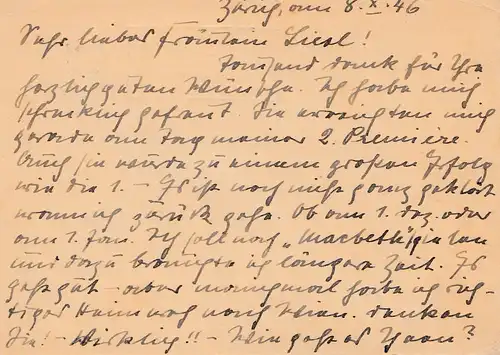 Zürich, am 8.X.46
Sehr liebes Fräulein Liesl!
Tausend Dank für Ihre
herzlich guten Wünsche. Ich habe mich
schrecklich gefreut. Sie erreichten mich
gerade am Tag meiner 2. Premiere.
Auch sie wurde zu einem großen Erfolg
wie die 1. – Es ist noch nicht ganz geklärt
wann ich zurück gehe. Ob am 1. Dez. oder
am 1. Jan. Ich soll noch „Macbeth" spielen
und dazu benötigte ich längere Zeit. Es
geht gut – aber manchmal habe ich rich-
tiges Heimweh nach Wien. Danken
Sie! – Wirklich!! – Wie geht es Ihnen?